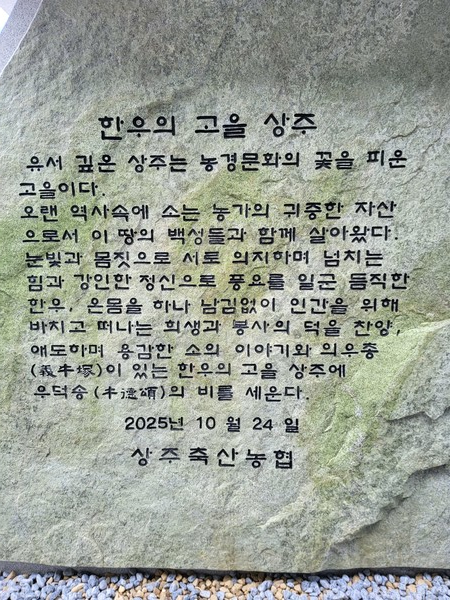 한우의 고을 상주
유서 깊은 상주는 농경문화의 꽃을 피운
고을이다.
오랜 역사속에 소는 농가의 귀중한 자산
으로서 이 땅의 백성들과 함께 살아왔다.
눈빛과 몸짓으로 서로 의지하며 넘치는
힘과 강인한 정신으로 풍요를 일군 듬직한
한우, 온몸을 하나 남김없이 인간을 위해
바치고 떠나는 희생과 봉사의 덕을 찬양,
애도하며 용감한 소의 이야기와 의우총
(義牛塚)이 있는 한우의 고을 상주에
우덕송(牛德頌)의 비를 세운다.
2025년 10 월 24 일
상주축산농협